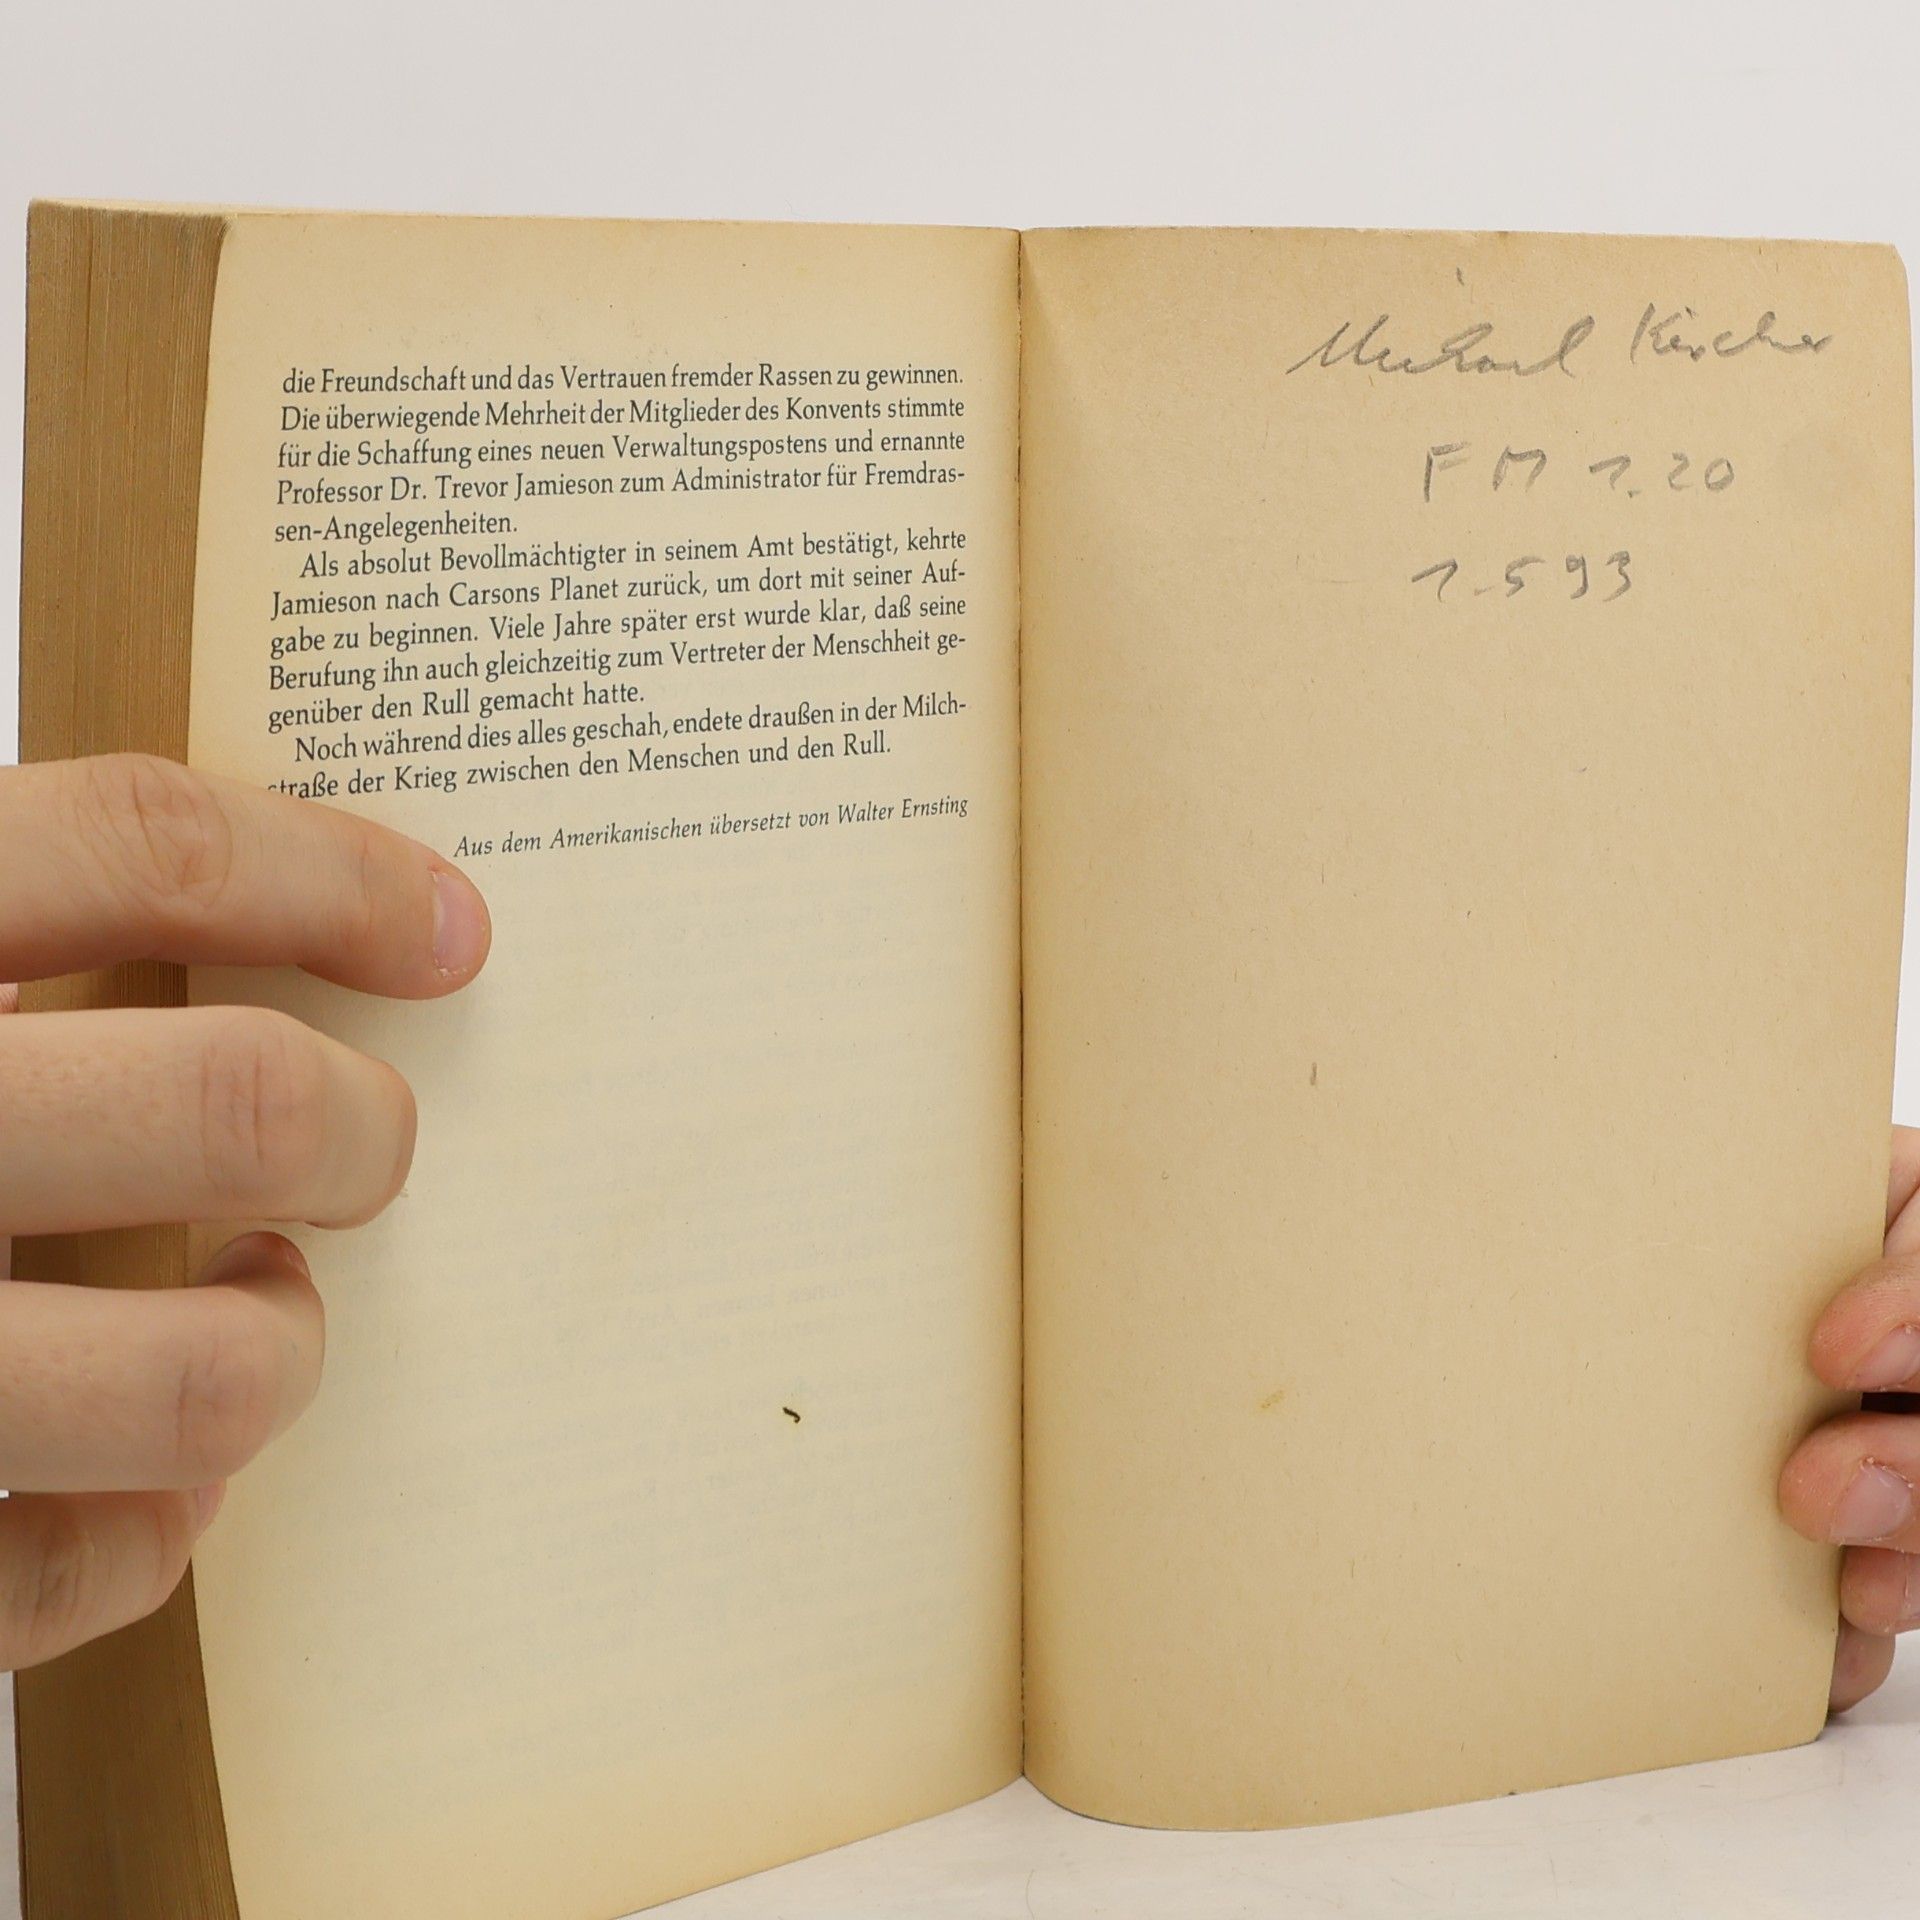 die Freundschaft und das Vertrauen fremder Rassen zu gewinnen.
Die überwiegende Mehrheit der Mitglieder des Konvents stimmte
für die Schaffung eines neuen Verwaltungspostens und ernannte
Professor Dr. Trevor Jamieson zum Administrator für Fremdras-
sen-Angelegenheiten.
Als absolut Bevollmächtigter in seinem Amt bestätigt, kehrte
Jamieson nach Carsons Planet zurück, um dort mit seiner Auf-
gabe zu beginnen. Viele Jahre später erst wurde klar, daß seine
Berufung ihn auch gleichzeitig zum Vertreter der Menschheit ge-
genüber den Rull gemacht hatte.
Noch während dies alles geschah, endete draußen in der Milch-
straße der Krieg zwischen den Menschen und den Rull.
Aus dem Amerikanischen übersetzt von Walter Ernsting
Michael Kircher
FM 1.20
1.593